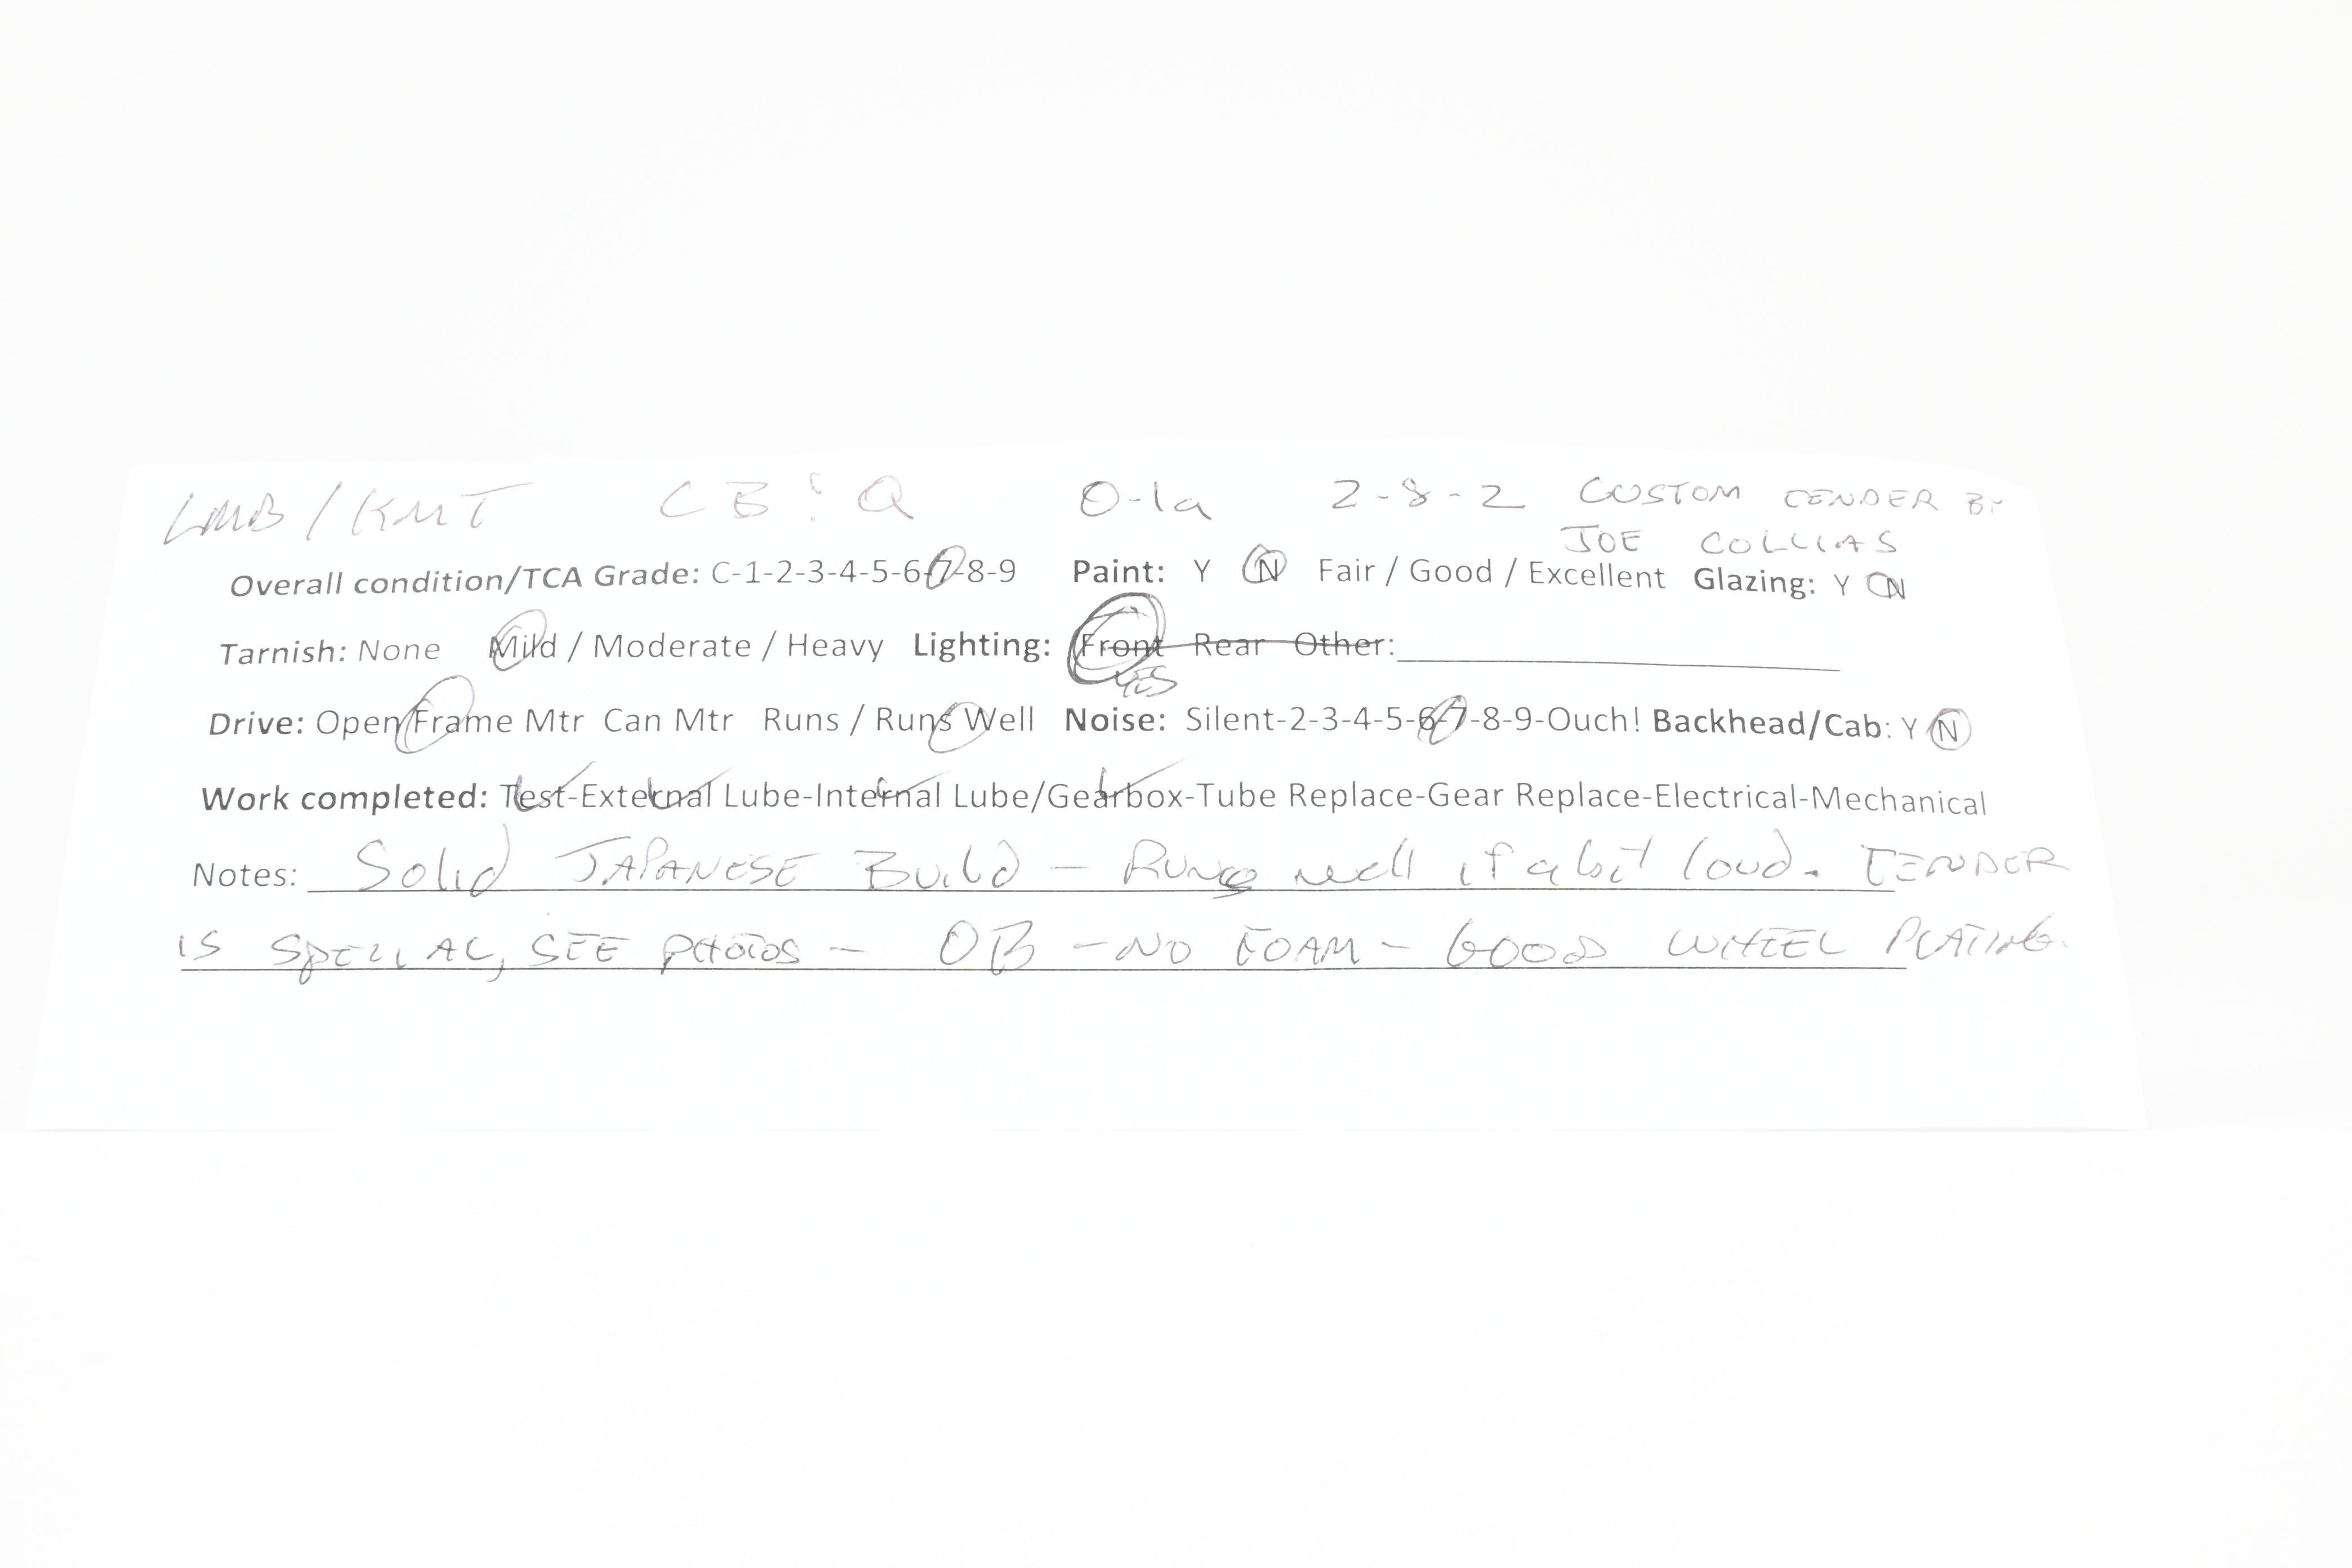 LMB/KMT CB&Q O-1a 2-8-2 CUSTOM TENDER BY
JOE COLLIAS
Overall condition/TCA Grade: C-1-2-3-4-5-6-7-8-9 Paint: Y N Fair / Good / Excellent Glazing: Y N
Tarnish: None Mild / Moderate / Heavy Lighting: Front Rear Other:
YES
Drive: Open Frame Mtr Can Mtr Runs / Runs Well Noise: Silent-2-3-4-5-6-7-8-9-Ouch! Backhead/Cab: Y N
Work completed: Test-External Lube-Internal Lube/Gearbox-Tube Replace-Gear Replace-Electrical-Mechanical
Notes: Solid JAPANESE Build – Runs well if a bit loud. TENDER
IS SPECIAL, SEE PHOTOS – OB – NO FOAM – GOOD WHEEL PLATING.